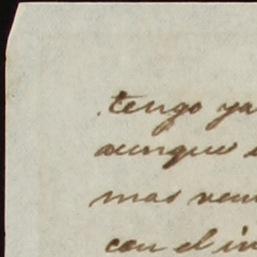 tengo ya
aunque
mas
con el